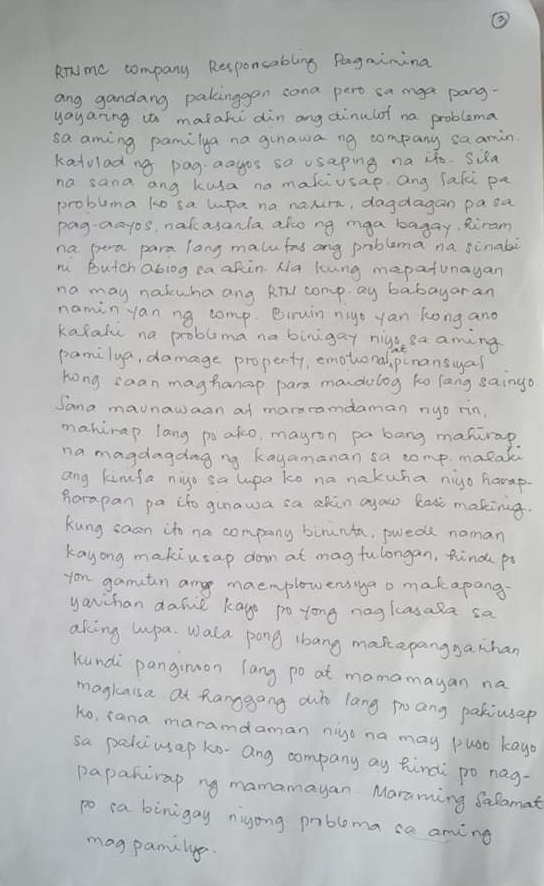 3
RTNMC company Responsabling Pagmimina
ang gandang pakinggan sana pero sa mga pang-
yayaring ito malaki din ang dinulot na problema
sa aming pamilya na ginawa ng company sa amin.
katulad ng pag-aayos sa usaping na ito. Sila
na sana ang kusa na makiusap. Ang laki pa
problema ko sa lupa na nasira, dagdagan pa sa
pag-aayos, nakasanla ako ng mga bagay, hiram
na pera para lang malutas ang problema na sinabi
ni Butch Abiog sa akin. Na kung mapatunayan
na may nakuha ang RTN comp. ay babayaran
namin yan ng comp. Biruin niyo yan kong ano
kalaki na problema na binigay niyo sa aming
pamilya, damage property, emotional, at pinansiyal
kong saan maghanap para maidulog ko lang sainyo.
Sana maunawaan at mararamdaman nyo rin,
mahirap lang po ako, mayron pa bang mahirap
na magdagdag ng kayamanan sa comp. malaki
ang kinita niyo sa lupa ko na nakuha niyo harap-
harapan pa ito ginawa sa akin ayaw kasi makinig.
kung saan ito na company bininta, pwede naman
kayong makiusap doon at magtulongan, hinde po
yon gamitin ang maemplowensiya o makapang-
yarihan dahil kayo po yong nagkasala sa
aking lupa. Wala pong ibang makapangyarihan
kundi panginoon lang po at mamamayan na
magkaisa. At hanggang dito lang po ang pakiusap
ko, sana maramdaman niyo na may puso kayo
sa pakiusap ko. Ang company ay hindi po nag-
papahirap ng mamamayan. Maraming Salamat
po sa binigay niyong problema sa aming
mag pamilya.